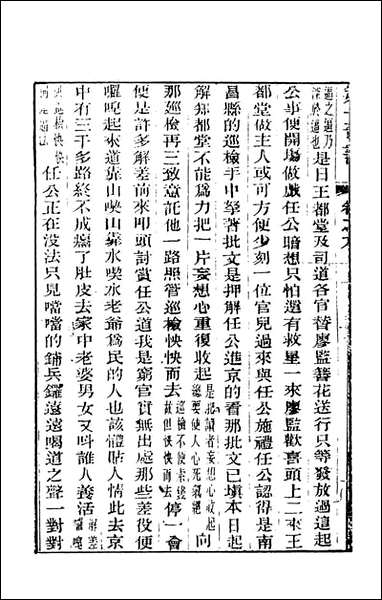 遁之遁乃
深於遁也
是日王都堂及司道各官替廖監簪花送行只等發放過這起
公事便開場做戲任公暗想只怕還有救星一來廖監歡喜頭上二來王
都堂做主人或可方便少刻一位官兒過來與任公施禮任公認得是南
昌縣的巡檢手中拏著批文是押解任公進京的看那批文已填本日起
解知都堂不能爲力把一片妄想心重復收起
是那讀者妄想心收起
向
那巡檢再三致意託他一路照管巡檢怏怏而去
巡檢不便
就但怏怏而去
停一會
便是許多解差前來叩頭討賞任公道我是窮官實無出處那些差役便
囉唣起來道靠山喫山靠水喫水老爺爲民的人也該體貼人情此去京
中有三千多路終不成癟了肚皮去家中老婆男女又呌誰人養活
解差
囉唣
巡檢怏怏
任公正在没法只見噹噹的鋪兵鑼遠遠喝道之聲一對對